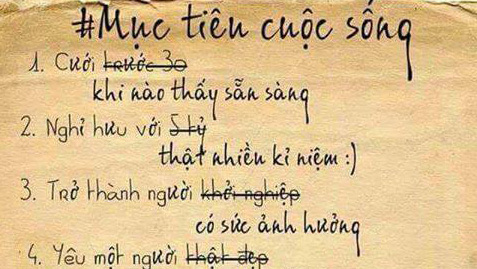 #Mục tiêu cuộc sống
1. Cưới trước 30
khi nào thấy sẵn sàng
2. Nghỉ hưu với 5 tỷ
thật nhiều kỉ niệm :)
3. Trở thành người khởi nghiệp
có sức ảnh hưởng
4. Yêu một người thật đẹp